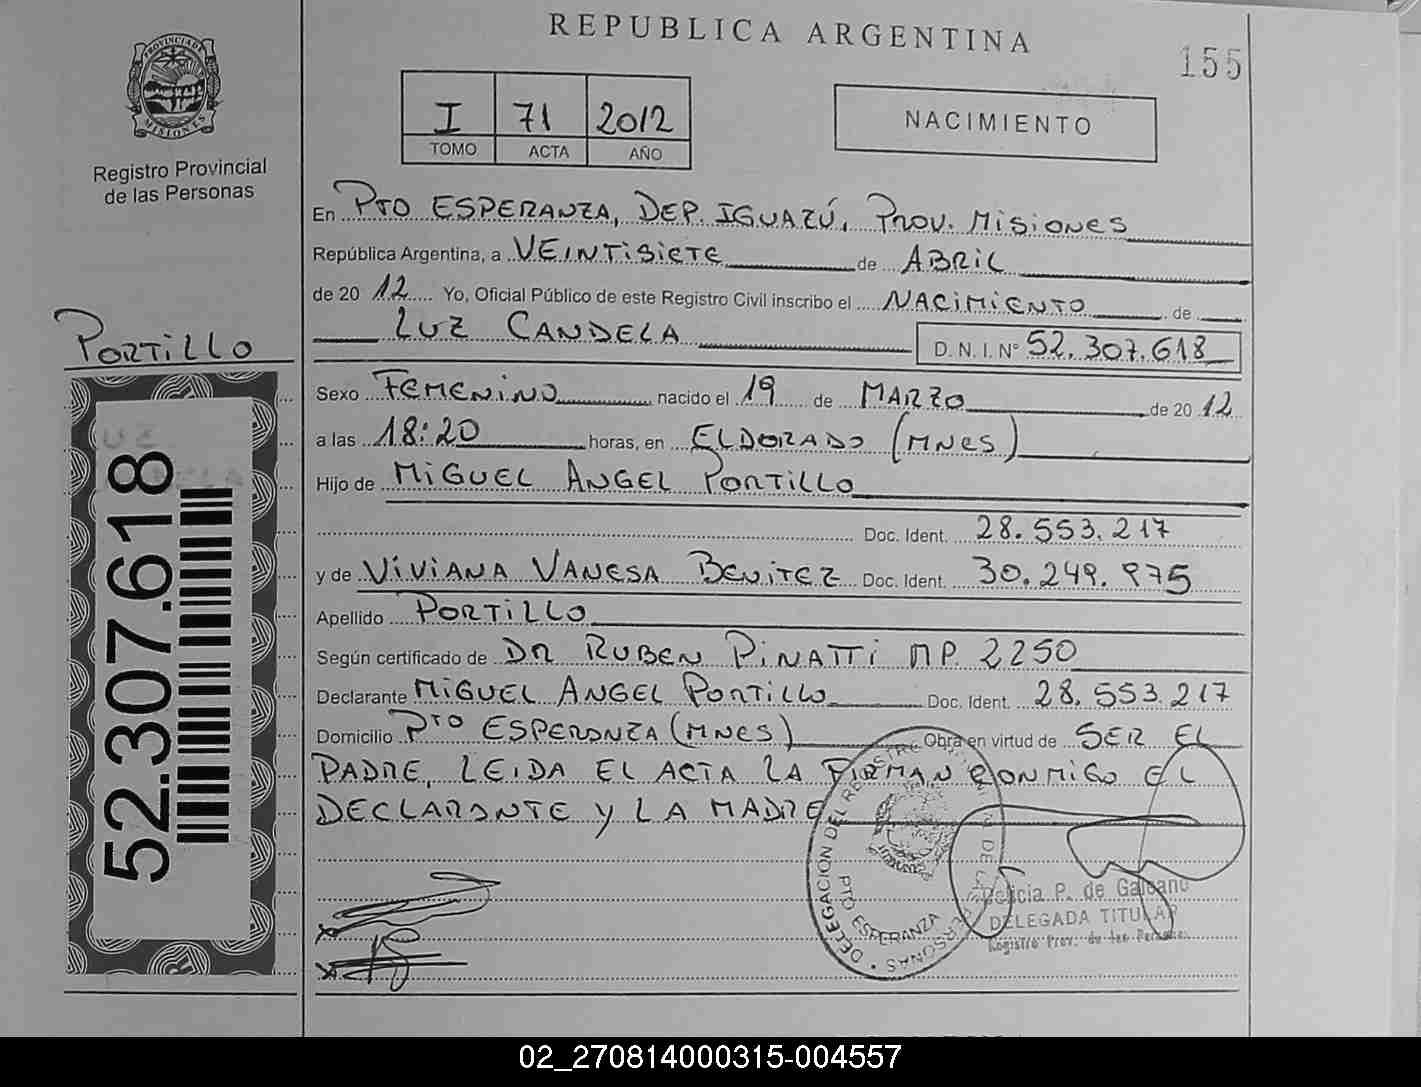 REPUBLICA ARGENTINA
155
PROVINCIA DE MISIONES
Registro Provincial
de las Personas
I 71 2012
TOMO ACTA AÑO
NACIMIENTO
En PTO ESPERANZA, DEP. IGUAZÚ, PROV. MISIONES
República Argentina, a VEINTISIETE de ABRIL
de 2012 Yo, Oficial Público de este Registro Civil inscribo el NACIMIENTO de
LUZ CANDELA D. N. I. N° 52.307.618
PORTILLO
Sexo FEMENINO nacido el 19 de MARZO de 2012
a las 18:20 horas, en ELDORADO (MNES)
Hijo de MIGUEL ANGEL PORTILLO
Doc. Ident. 28.553.217
y de VIVIANA VANESA BENITEZ Doc. Ident. 30.249.975
Apellido PORTILLO
Según certificado de DR RUBEN PINATTI MP. 2250
Declarante MIGUEL ANGEL PORTILLO Doc. Ident. 28.553.217
Domicilio PTO ESPERANZA (MNES) Obra en virtud de SER EL
PADRE, LEIDA EL ACTA LA FIRMAN CONMIGO EL
DECLARANTE Y LA MADRE
52.307.618
DELEGACION DEL REGISTRO
PTO ESPERANZA
DELEGADA TITULAR
Registro Prov. de las Personas
02_270814000315-004557